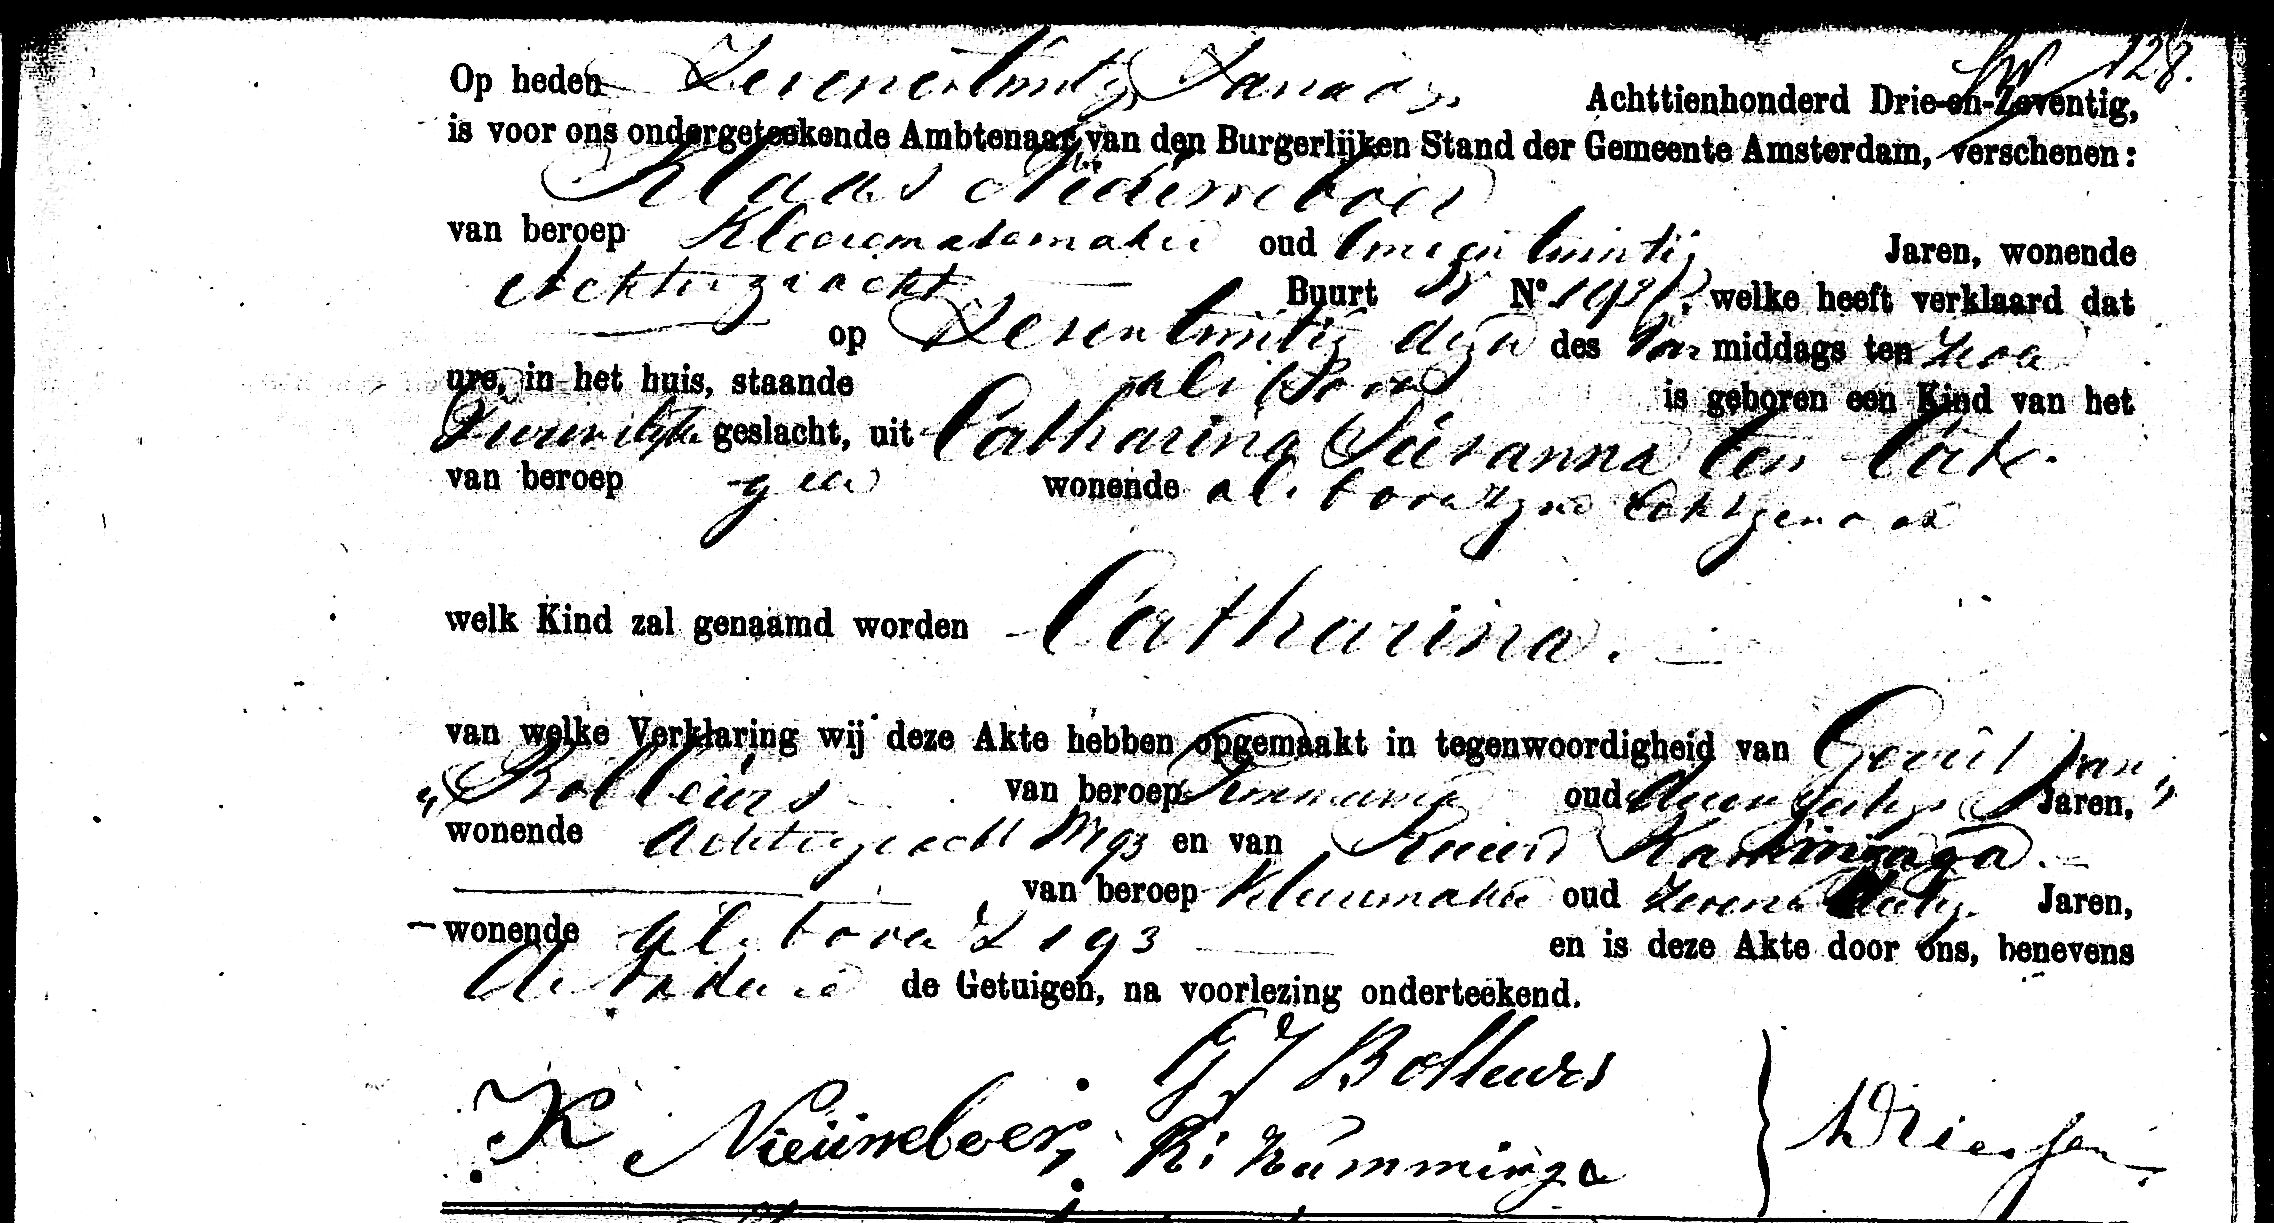 128.
Op heden Zevenentwintig Januarij Achttienhonderd Drie-en-Zeventig,
is voor ons ondergeteekende Ambtenaar van den Burgerlijken Stand der Gemeente Amsterdam, verschenen:
Klaas Nieuweboer
van beroep Kleeremakersmaker oud twee en twintig Jaren, wonende
Achtergracht Buurt N° 193 welke heeft verklaard dat
op Zevenentwintig dezer des voor middags ten twee
ure, in het huis, staande als boven is geboren een Kind van het
Vrouwelijke geslacht, uit Catharina Susanna ten Cate
van beroep geen wonende als boven zijne Echtgenoote
welk Kind zal genaamd worden Catharina.
van welke Verklaring wij deze Akte hebben opgemaakt in tegenwoordigheid van Gerrit Jan
Bolleurs van beroep Timmerman oud Jaren,
wonende Achtergracht 193 en van Kamminga
van beroep Kleermaker oud Jaren,
wonende als boven 193 en is deze Akte door ons, benevens
de Vader en de Getuigen, na voorlezing onderteekend.
G J Bolleurs
K Nieuweboer, R: Kamminga